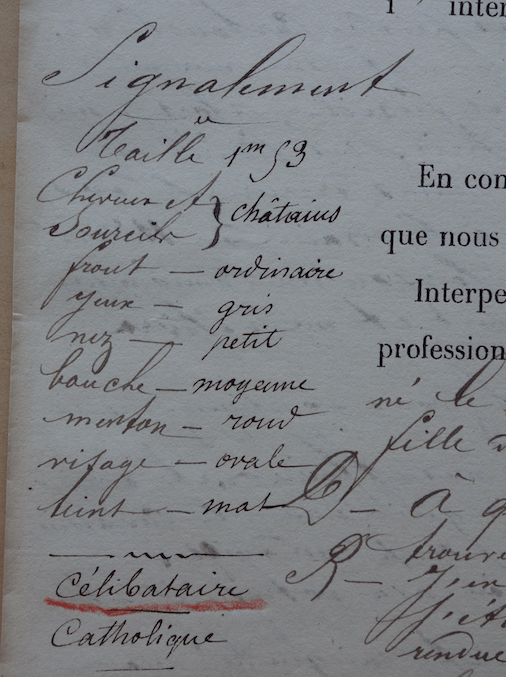 inter
Signalement
Taille 1m 53
Cheveux et
Sourcils } châtains
En con
que nous
front — ordinaire
yeux — gris
Interpe
nez — petit
profession
bouche — moyenne
né le
menton — rond
fille d
visage — ovale
teint — mat
D — à q
trouve
Célibataire
R — J'en
Catholique
J'ét
rendue